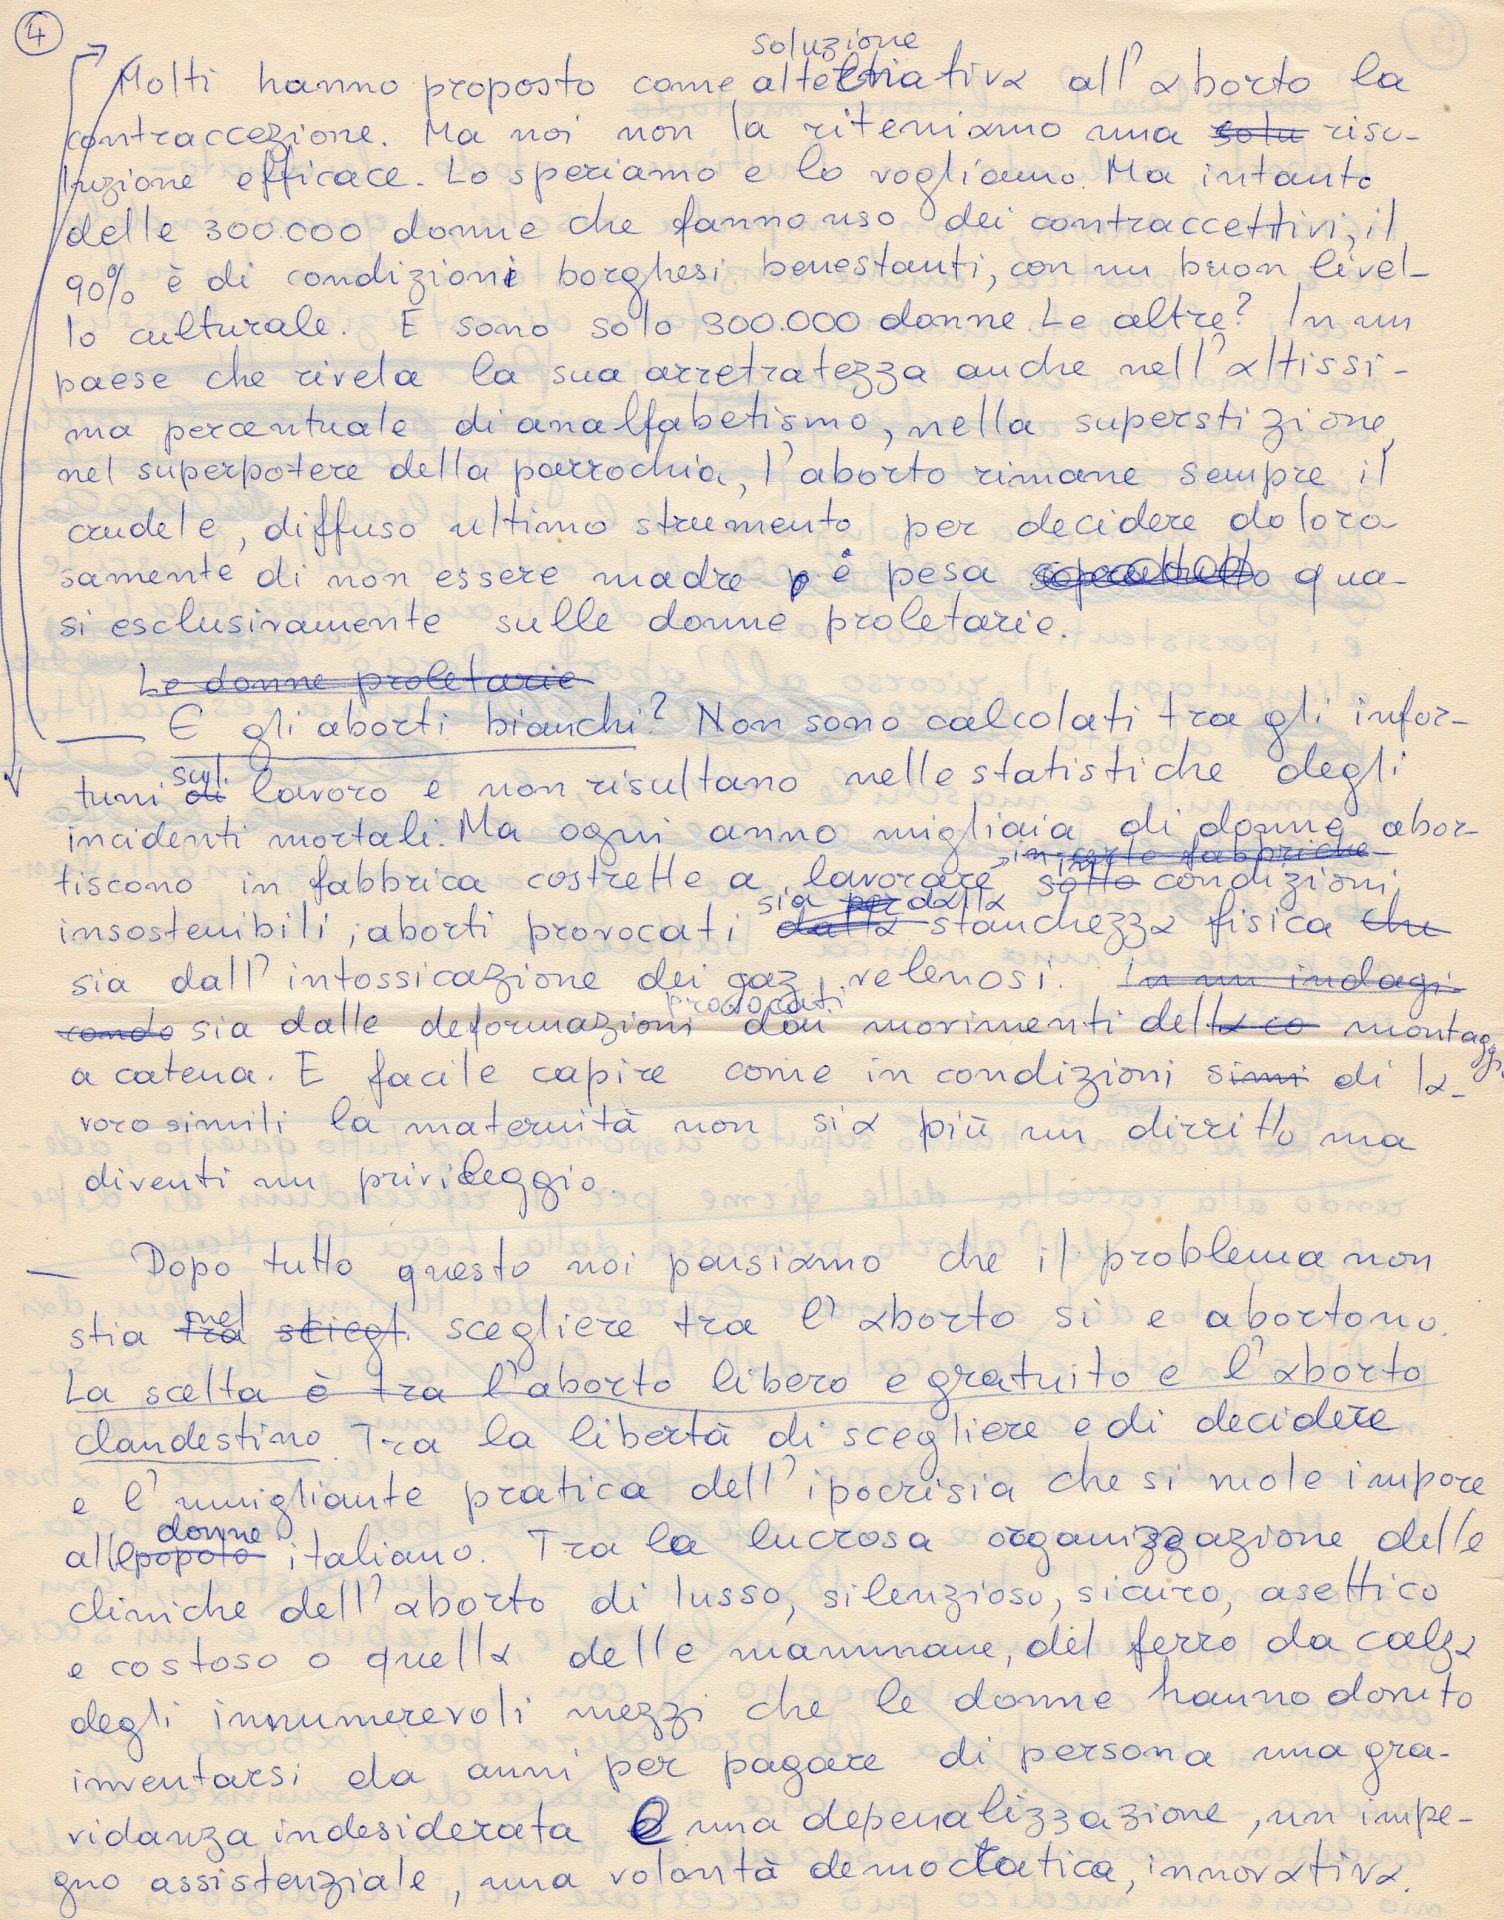 4
soluzione
Molti hanno proposto come alternativa all'aborto la
contraccezione. Ma noi non la riteniamo una solu riso-
luzione efficace. Lo speriamo e lo vogliamo. Ma intanto
delle 300.000 donne che fanno uso dei contraccettivi, il
90% è di condizioni borghesi benestanti, con un buon livel-
lo culturale. E sono solo 300.000 donne. Le altre? In un
paese che rivela la sua arretratezza anche nell'altissi-
ma percentuale di analfabetismo, nella superstizione,
nel superpotere della parrochia, l'aborto rimane sempre il
crudele, diffuso ultimo strumento per decidere doloro
samente di non essere madre e pesa qua-
si esclusivamente sulle donne proletarie.
Le donne proletarie
E gli aborti bianchi? Non sono calcolati tra gli infor-
tuni di sul lavoro e non risultano nelle statistiche degli
incidenti mortali. Ma ogni anno migliaia di donne abor-
in certe fabbriche
tiscono in fabbrica costrette a lavorare sotto in condizioni
sia per dalla
insostenibili, aborti provocati dalla stanchezza fisica che
sia dall'intossicazione dei gaz velenosi. In un indagi
provocati
condo sia dalle deformazioni dai movimenti della co montaggi
a catena. E facile capire come in condizioni simi di la-
voro simili la maternità non sia più un dirritto ma
diventi un privileggio.
— Dopo tutto questo noi pensiamo che il problema non
stia tra nel sciegl. scegliere tra l'aborto sì e aborto no.
La scelta è tra l'aborto libero e gratuito e l'aborto
clandestino. Tra la libertà di scegliere e di decidere
e l'umigliante pratica dell'ipocrisia che si vuole impore
donne
alle popolo italiano. Tra la lucrosa organizzazione delle
cliniche dell'aborto di lusso, silenzioso, sicuro, asettico
e costoso o quella delle mammane, del ferro da calza
degli innumerevoli mezzi che le donne hanno donuto
inventarsi da anni per pagare di persona una gra-
vidanza indesiderata e una depenalizzazione, un impe-
gno assistenziale, una volontà democratica, innovativa.